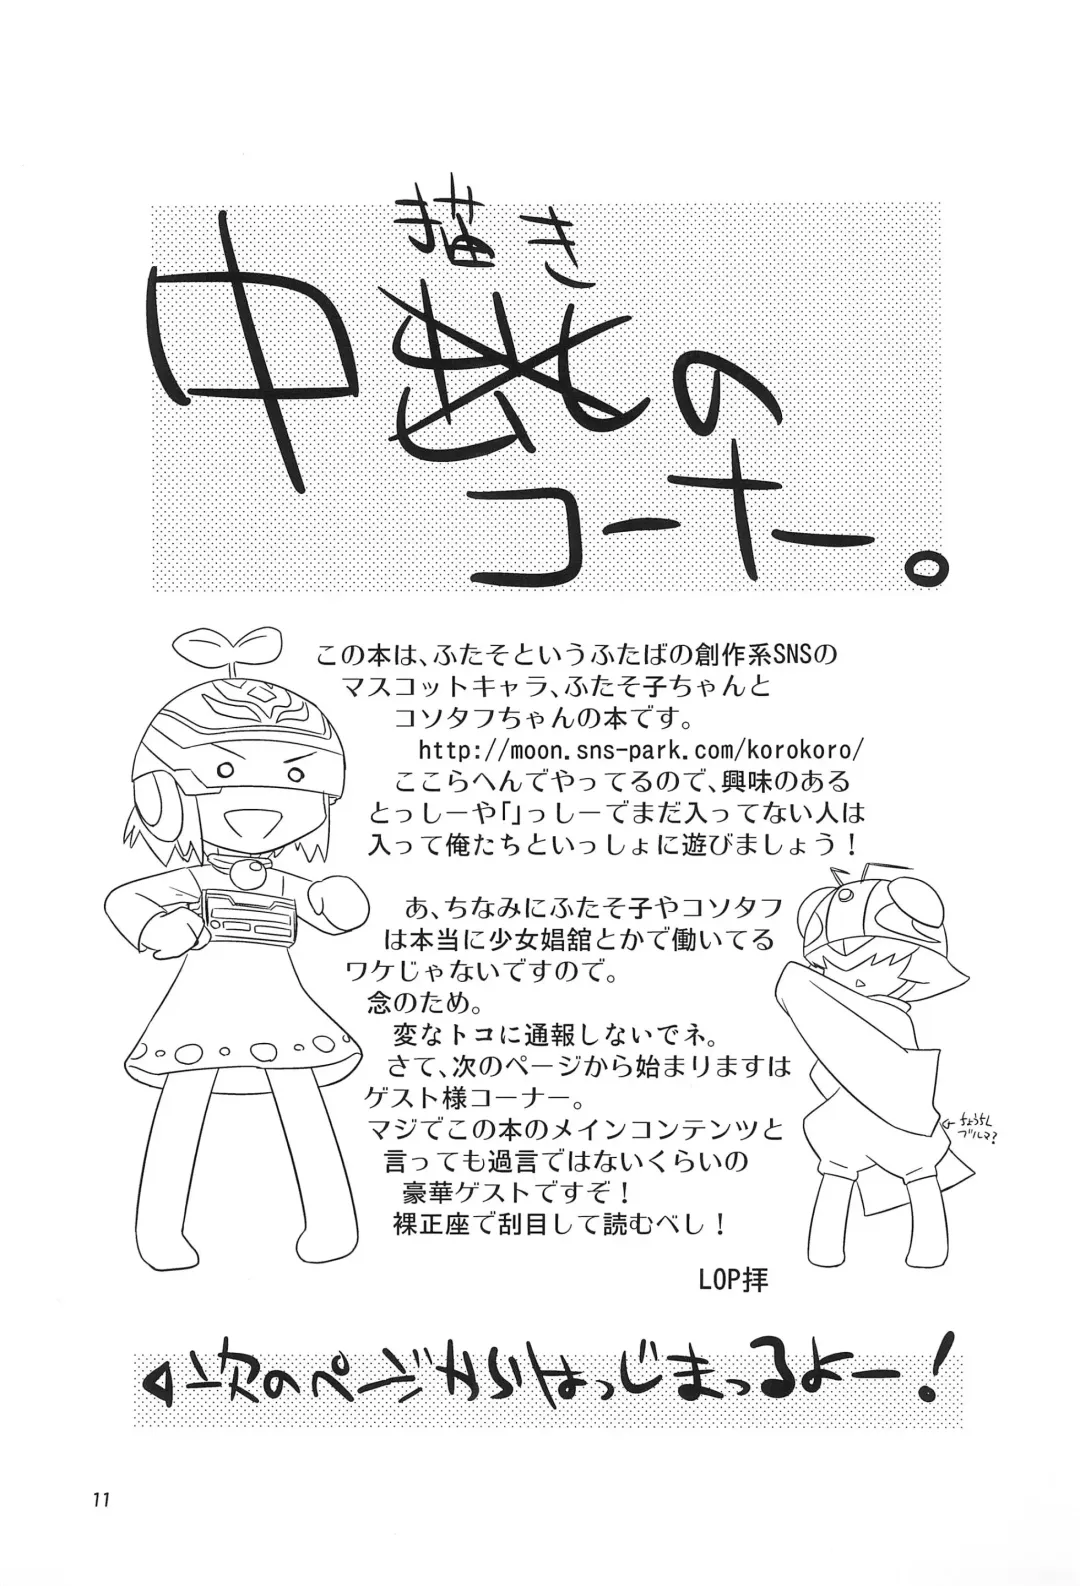 描き
中出しの
コーナー。
この本は、ふたそというふたばの創作系SNSの
マスコットキャラ、ふたそ子ちゃんと
コソタフちゃんの本です。
http://moon.sns-park.com/korokoro/
ここらへんでやってるので、興味のある
とっしーや「」っしーでまだ入ってない人は
入って俺たちといっしょに遊びましょう！
あ、ちなみにふたそ子やコソタフ
は本当に少女娼舘とかで働いてる
ワケじゃないですので。
念のため。
変なトコに通報しないでネ。
さて、次のページから始まりますは
ゲスト様コーナー。
マジでこの本のメインコンテンツと
言っても過言ではないくらいの
豪華ゲストですぞ！
裸正座で刮目して読むべし！
LOP拝
← ちょうちん
ブルマ？
次のページからはっじまっるよー！
11